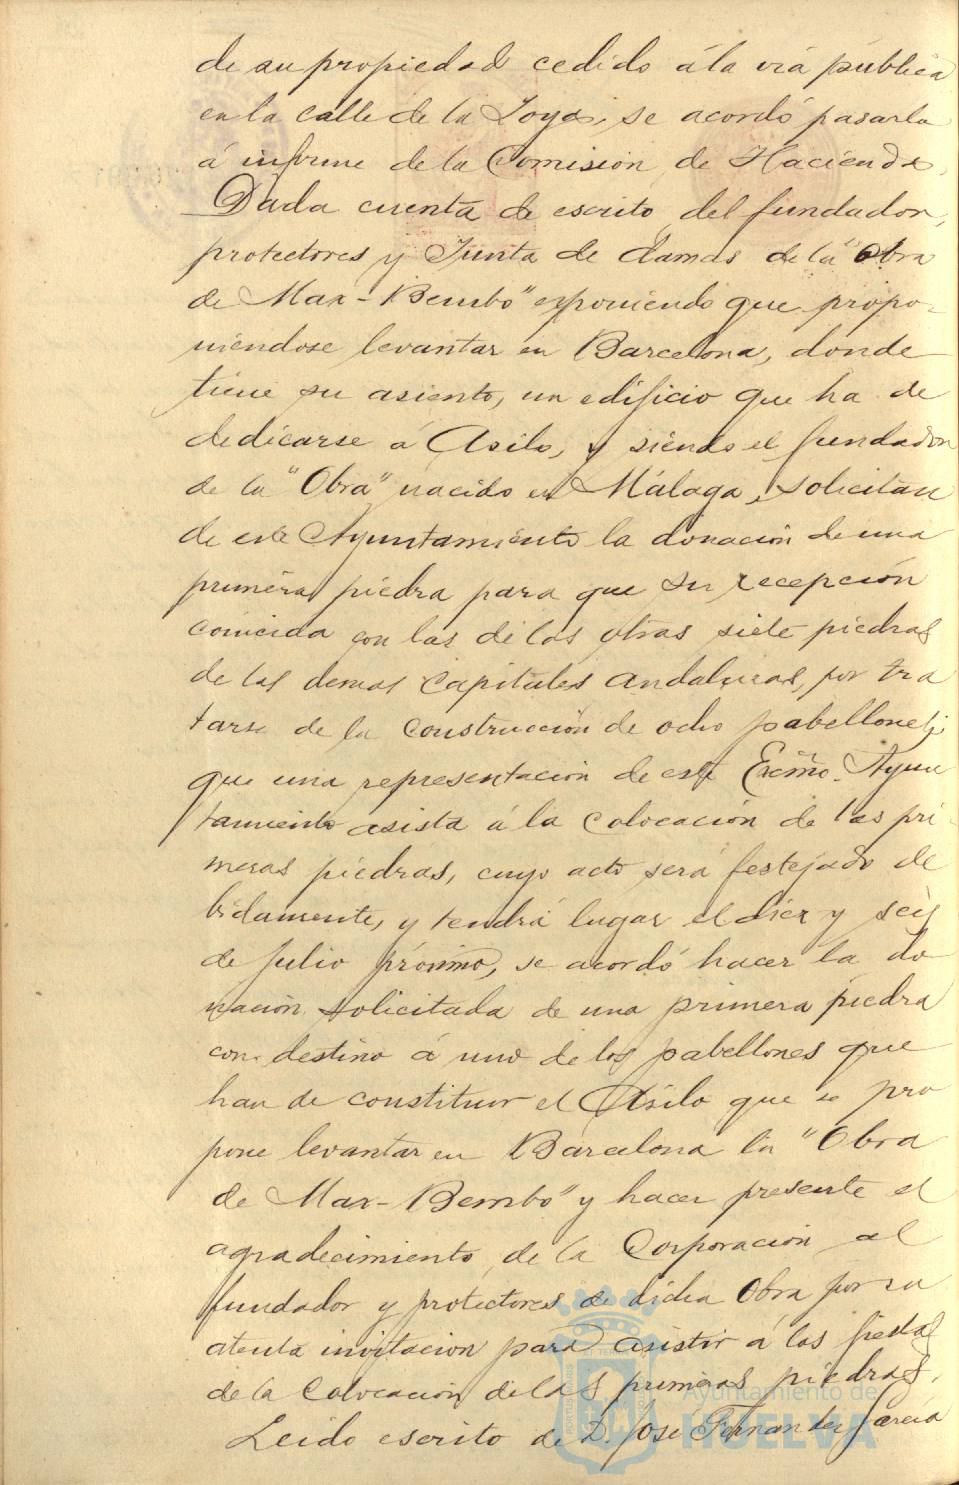 de su propiedad cedido á la via pública
en la calle de la Joya, se acordó pasarla
á informe de la Comision de Hacienda.
Dada cuenta de escrito del fundador,
protectores y Junta de damas de la "Obra
de Max-Bembo" exponiendo que propo-
niéndose levantar en Barcelona, donde
tiene su asiento, un edificio que ha de
dedicarse á Asilo, y siendo el fundador
de la "Obra" nacido en Málaga, solicitan
de este Ayuntamiento la donación de una
primera piedra para que su recepción
coincida con las de las otras siete piedras
de las demas capitales andaluzas, por tra
tarse de la construcción de ocho pabellones;
que una representación de este Excmo. Ayun
tamiento asista á la colocación de las pri-
meras piedras, cuyo acto será festejado de
bidamente, y tendrá lugar el diez y seis
de julio próximo, se acordó hacer la do
nación solicitada de una primera piedra
con destino á uno de los pabellones que
han de constituir el Asilo que se pro
pone levantar en Barcelona la "Obra
de Max-Bembo" y hacer presente el
agradecimiento de la Corporación al
fundador y protectores de dicha Obra por su
atenta invitacion para asistir á las fiestas
de la colocación de las primeras piedras.
Leido escrito de D. José Fernandez Garcia
Ayuntamiento de
HUELVA